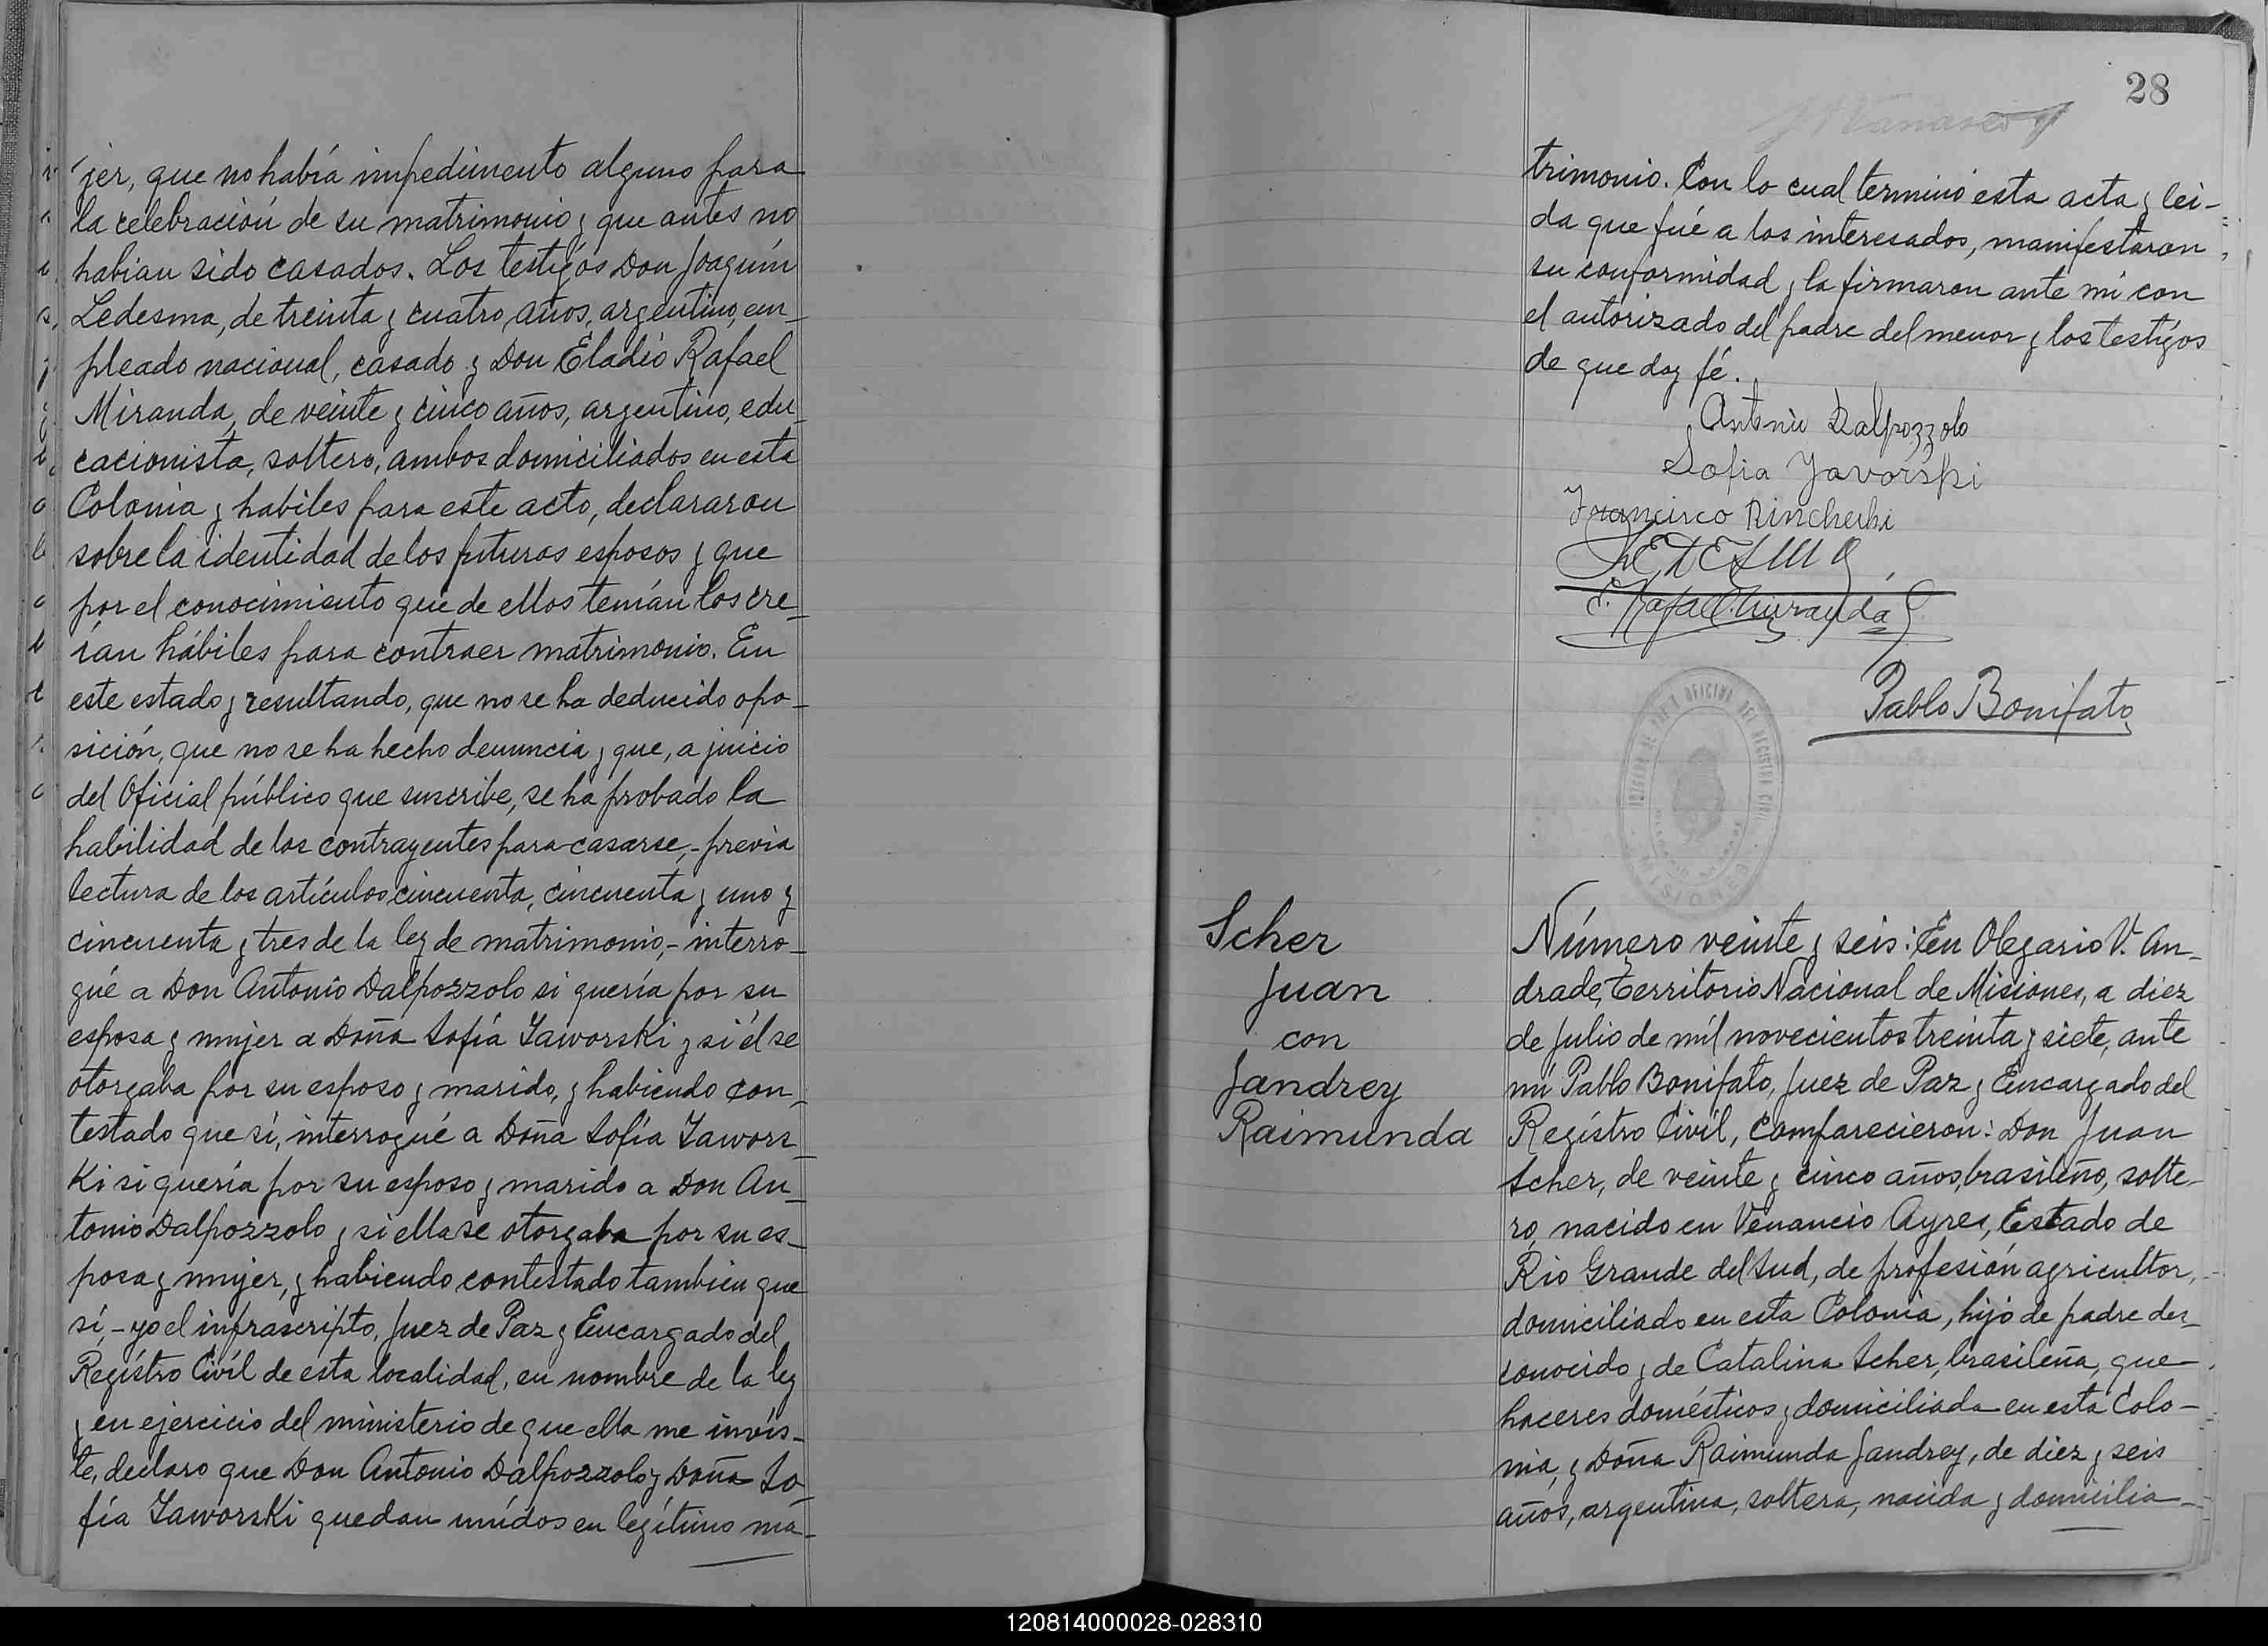 jer, que no había impedimento alguno para
la celebración de su matrimonio y que antes no
habian sido casados. Los testigos Don Joaquín
Ledesma, de treinta y cuatro años, argentino, em-
pleado nacional, casado y Don Eladio Rafael
Miranda, de veinte y cinco años, argentino, edu-
cacionista, soltero, ambos domiciliados en esta
Colonia y habiles para este acto, declararon
sobre la identidad de los futuros esposos y que
por el conocimiento que de ellos tenían los cre-
ían hábiles para contraer matrimonio. En
este estado y resultando, que no se ha deducido opo-
sición, que no se ha hecho denuncia y que, a juicio
del Oficial público que suscribe, se ha probado la
habilidad de los contrayentes para casarse,- previa
lectura de los artículos cincuenta, cincuenta y uno y
cincuenta y tres de la ley de matrimonio,- interro-
gué a Don Antonio Dalpozzolo si quería por su
esposa y mujer a Doña Sofía Jaworski y si él se
otorgaba por su esposo y marido, y habiendo con-
testado que sí, interrogué a Doña Sofía Jawors-
Ki si quería por su esposo y marido a Don An-
tonio Dalpozzolo y si ella se otorgaba por su es-
posa y mujer, y habiendo contestado tambien que
sí,- yo el infrascripto, Juez de Paz y Encargado del
Regístro Civíl de esta localidad, en nombre de la ley
y en ejercicio del ministerio de que ella me invis-
te, declaro que Don Antonio Dalpozzolo y Doña So-
fía Jaworski quedan unídos en legítimo ma-
28
trimonio. Con lo cual terminó esta acta y lei-
da que fué a los interesados, manifestaron
su conformidad y la firmaron ante mi con
el autorizado del padre del menor y los testigos
de que doy fé.
Antonio Dalpozzolo
Sofia Javorski
Francisco Rincheski
Ledesma
E. Rafael Miranda
Pablo Bonifato
JUZGADO DE PAZ Y OFICINA DEL REGISTRO CIVIL
MISIONES
Scher
Juan
con
Jandrey
Raimunda
Número veinte y seis: En Olegario V. An-
drade, Territorio Nacional de Misiones, a diez
de Julio de mil novecientos treinta y siete, ante
mí Pablo Bonifato, Juez de Paz y Encargado del
Regístro Civíl, comparecieron: Don Juan
Scher, de veinte y cinco años, brasileño, solte-
ro, nacido en Venancio Ayres, Estado de
Rio Grande del Sud, de profesión agricultor,
domiciliado en esta Colonia, hijo de padre des-
conocido y de Catalina Scher, brasileña, que-
haceres domésticos y domiciliada en esta Colo-
nia, y Doña Raimunda Jandrey, de diez y seis
años, argentina, soltera, nacida y domicilia-
120814000028-028310